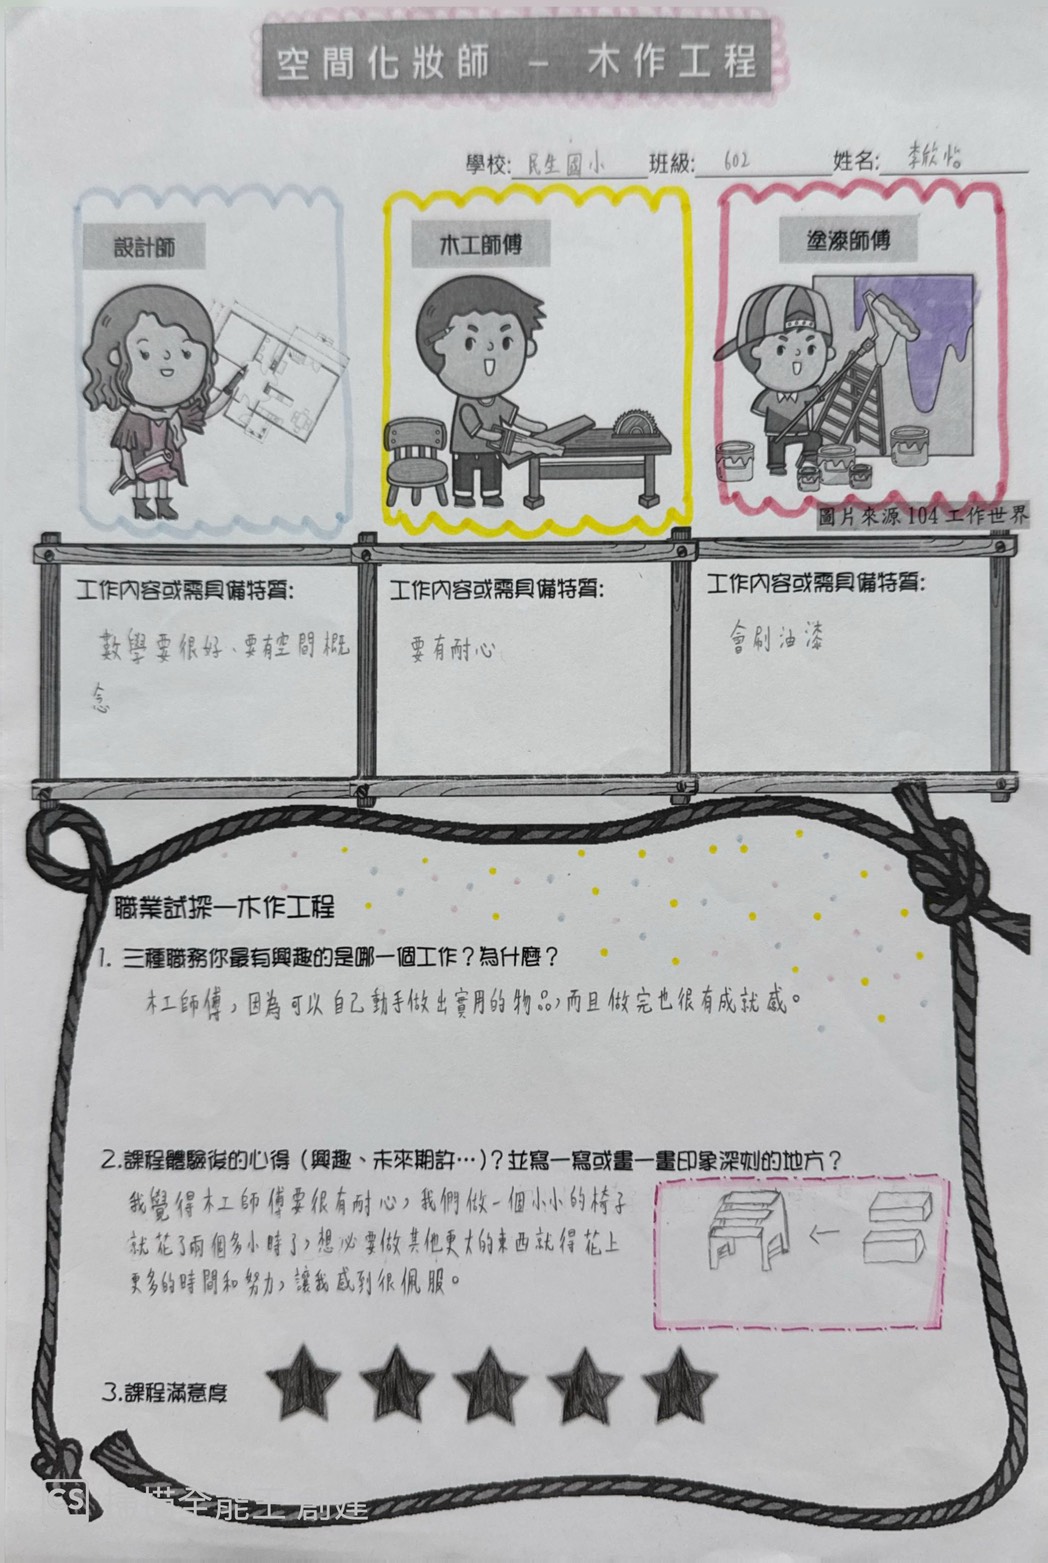 空間化妝師 – 木作工程
學校: 民生國小 班級: 602 姓名: 李欣怡
設計師
木工師傅
塗漆師傅
圖片來源 104 工作世界
工作內容或需具備特質:
數學要很好、要有空間概
念
工作內容或需具備特質:
要有耐心
工作內容或需具備特質:
會刷油漆
職業試探—木作工程
1. 三種職務你最有興趣的是哪一個工作？為什麼？
木工師傅，因為可以自己動手做出實用的物品，而且做完也很有成就感。
2.課程體驗後的心得（興趣、未來期許…）？並寫一寫或畫一畫印象深刻的地方？
我覺得木工師傅要很有耐心，我們做一個小小的椅子
就花了兩個多小時了，想必要做其他更大的東西就得花上
更多的時間和努力，讓我感到很佩服。
3.課程滿意度
CS 掃描全能王 創建